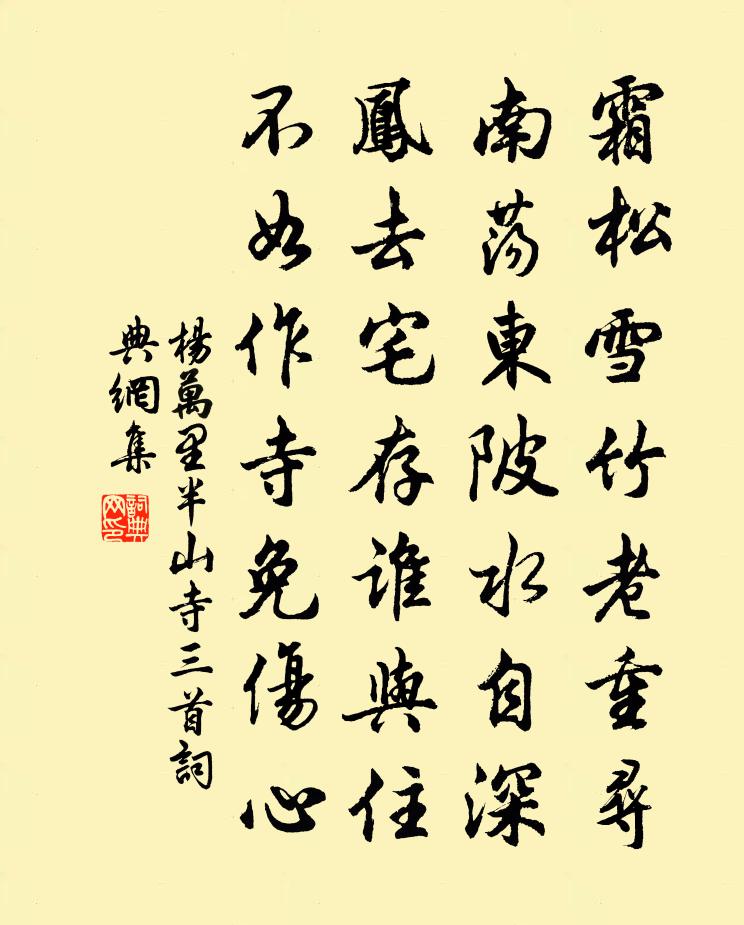 霜松雪竹老重尋
南蕩東陂水自深
鳳去宅存誰與住
不如作寺免傷心
楊萬里半山寺三首詞
典網集
詞典網印